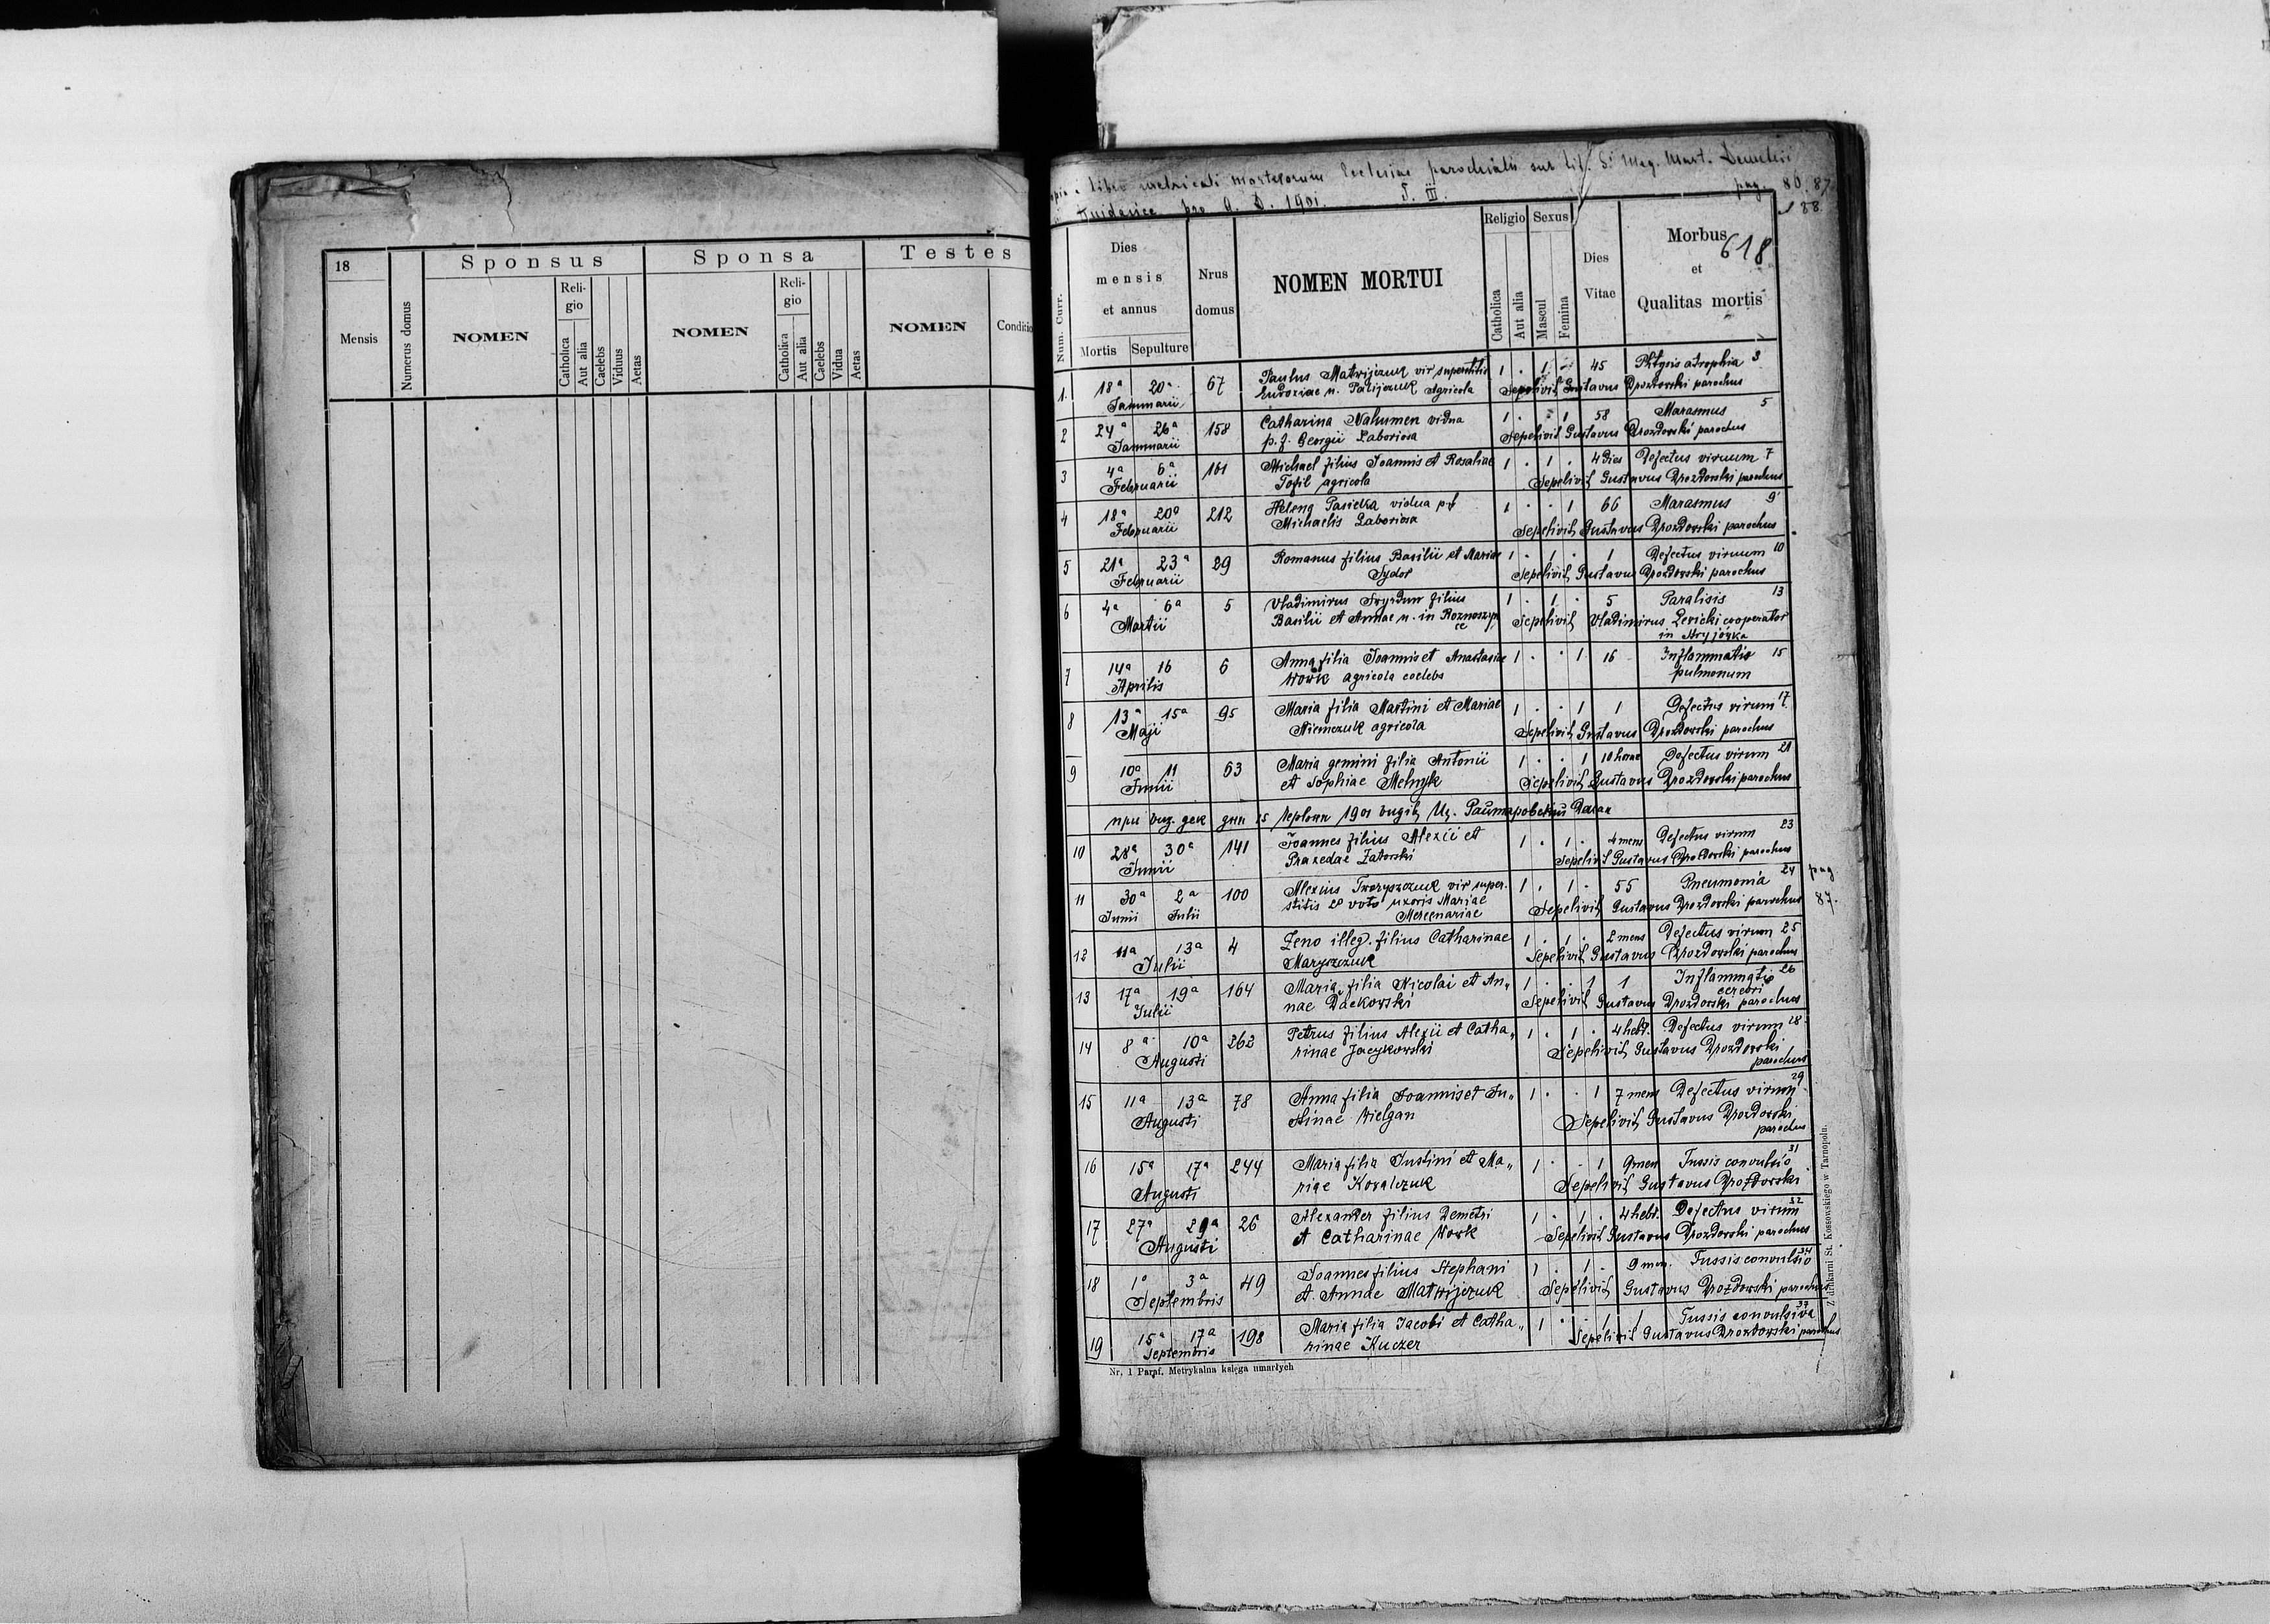 18
Sponsus
Sponsa
Testes
Mensis
Numerus domus
NOMEN
Religio
Catholica
Aut alia
Caelebs
Viduus
Aetas
NOMEN
Religio
Catholica
Aut alia
Caelebs
Vidua
Aetas
NOMEN
Conditio
libro metricali mortuorum Ecclesiae parochialis sub tit. S. Mag. Mart. Demetrii
pro A. D. 1901. T. III. pag. 86. 87
88
Num. Curr.
Dies mensis et annus
Mortis
Sepulture
Nrus domus
NOMEN MORTUI
Religio
Catholica
Aut alia
Sexus
Mascul
Femina
Dies Vitae
Morbus
et
Qualitas mortis
618
1. 18ª 20ª 67 Paulus Matwijczuk vir superstitis 1 . 1 . 45 Phtysis atrophia 3
Januarii Eudoxiae n. Palijczuk agricola Sepelivit Gustavus Drozdowski parochus
2 24ª 26ª 158 Catharina Nahumen vidua 1 . . 1 58 Marasmus 5
Januarii p. f. Georgii Laboriosa Sepelivit Gustavus Drozdowski parochus
3 4ª 6ª 161 Michael filius Joannis et Rosaliae 1 . 1 . 4 dies Defectus viruum 7
Februarii Tofil agricola Sepelivit Gustavus Drozdowski parochus
4 18ª 20ª 212 Helena Pasieka vidua p. f. 1 . . 1 66 Marasmus 9
Februarii Michaelis Laboriosa Sepelivit Gustavus Drozdowski parochus
5 21ª 23ª 29 Romanus filius Basilii et Mariae 1 . 1 . 1 Defectus viruum 10
Februarii Sydor Sepelivit Gustavus Drozdowski parochus
6 4ª 6ª 5 Vladimirus filius 1 . 1 . 5 Paralisis 13
Martii Basilii et Annae n. in Roznoszyn Sepelivit Vladimirus Levicki cooperator
ce in Stryjówka
7 14ª 16 6 Anna filia Joannis et Anastasiae 1 . . 1 16 Inflammatio 15
Aprilis Wowk agricola caelebs pulmonum
8 13ª 15ª 95 Maria filia Martini et Mariae 1 . . 1 1 Defectus virum 17
Maji Niemczuk agricola Sepelivit Gustavus Drozdowski parochus
9 10ª 11 63 Maria gemini filia Antonii 1 . . 1 10 horae Defectus virum 21
Junii et Sophiae Melnyk Sepelivit Gustavus Drozdowski parochus
при виз. дек дня 25 1901
10 28ª 30ª 141 Joannes filius Alexii et 1 . 1 . 4 mens Defectus virum 23
Junii Praxedae Zatorski Sepelivit Gustavus Drozdowski parochus
11 30ª 2ª 100 Alexius Tworyszczuk vir super- 1 . 1 . 55 Pneumonia 24 pag
Junii Julii stitis 2º voto uxoris Mariae Sepelivit Gustavus Drozdowski parochus 87.
Mercenariae
12 11ª 13ª 4 Zeno illeg. filius Catharinae 1 . 1 . 2 mens Defectus virum 25
Julii Maryszczuk Sepelivit Gustavus Drozdowski parochus
13 17ª 19ª 164 Maria filia Nicolai et An„ 1 . . 1 1 Inflammatio 26
cerebri
Julii nae Daekowski Sepelivit Gustavus Drozdowski parochus
14 8ª 10ª 262 Petrus filius Alexii et Catha„ 1 . 1 . 4 hebt. Defectus virum 28
Augusti rinae Jacykowski Sepelivit Gustavus Drozdowski
parochus
15 11ª 13ª 78 Anna filia Joannis et Ju„ 1 . . 1 7 mens Defectus virum 29
Augusti stinae Wielgan Sepelivit Gustavus Drozdowski
parochus
16 15ª 17ª 244 Maria filia Justini et Ma„ 1 . . 1 9 men Tussis convulsio 31
Augusti riae Kowalczuk Sepelivit Gustavus Drozdowski
17 27ª 29ª 26 Alexander filius Demetri 1 . 1 . 4 hebt. Defectus virum 32
Augusti et Catharinae Wowk Sepelivit Gustavus Drozdowski parochus
18 1ª 3ª 49 Joannes filius Stephani 1 . 1 . 9 men. Tussis convulsio 34
Septembris et Annae Matwijczuk Sepelivit Gustavus Drozdowski parochus
19 15ª 17ª 198 Maria filia Jacobi et Catha„ 1 . . 1 1 Tussis convulsiva 37
Septembris rinae Kuczer Sepelivit Gustavus Drozdowski parochus
Nr. 1 Paraf. Metrykalna księga umarłych
Z drukarni St. Kossowskiego w Tarnopolu.